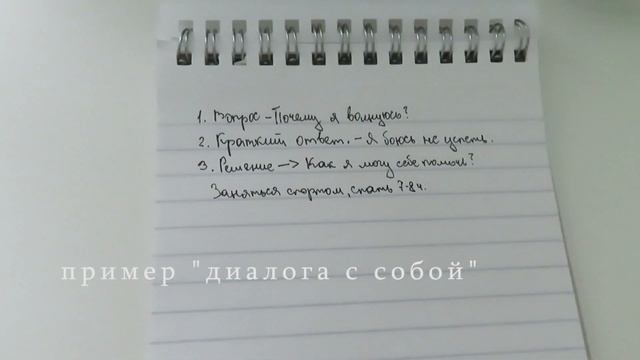 1. Вопрос - Почему я волнуюсь?
2. Краткий ответ. - Я боюсь не успеть.
3. Решение -> Как я могу себе помочь?
Заняться спортом, спать 7-8ч.
пример "диалога с собой"